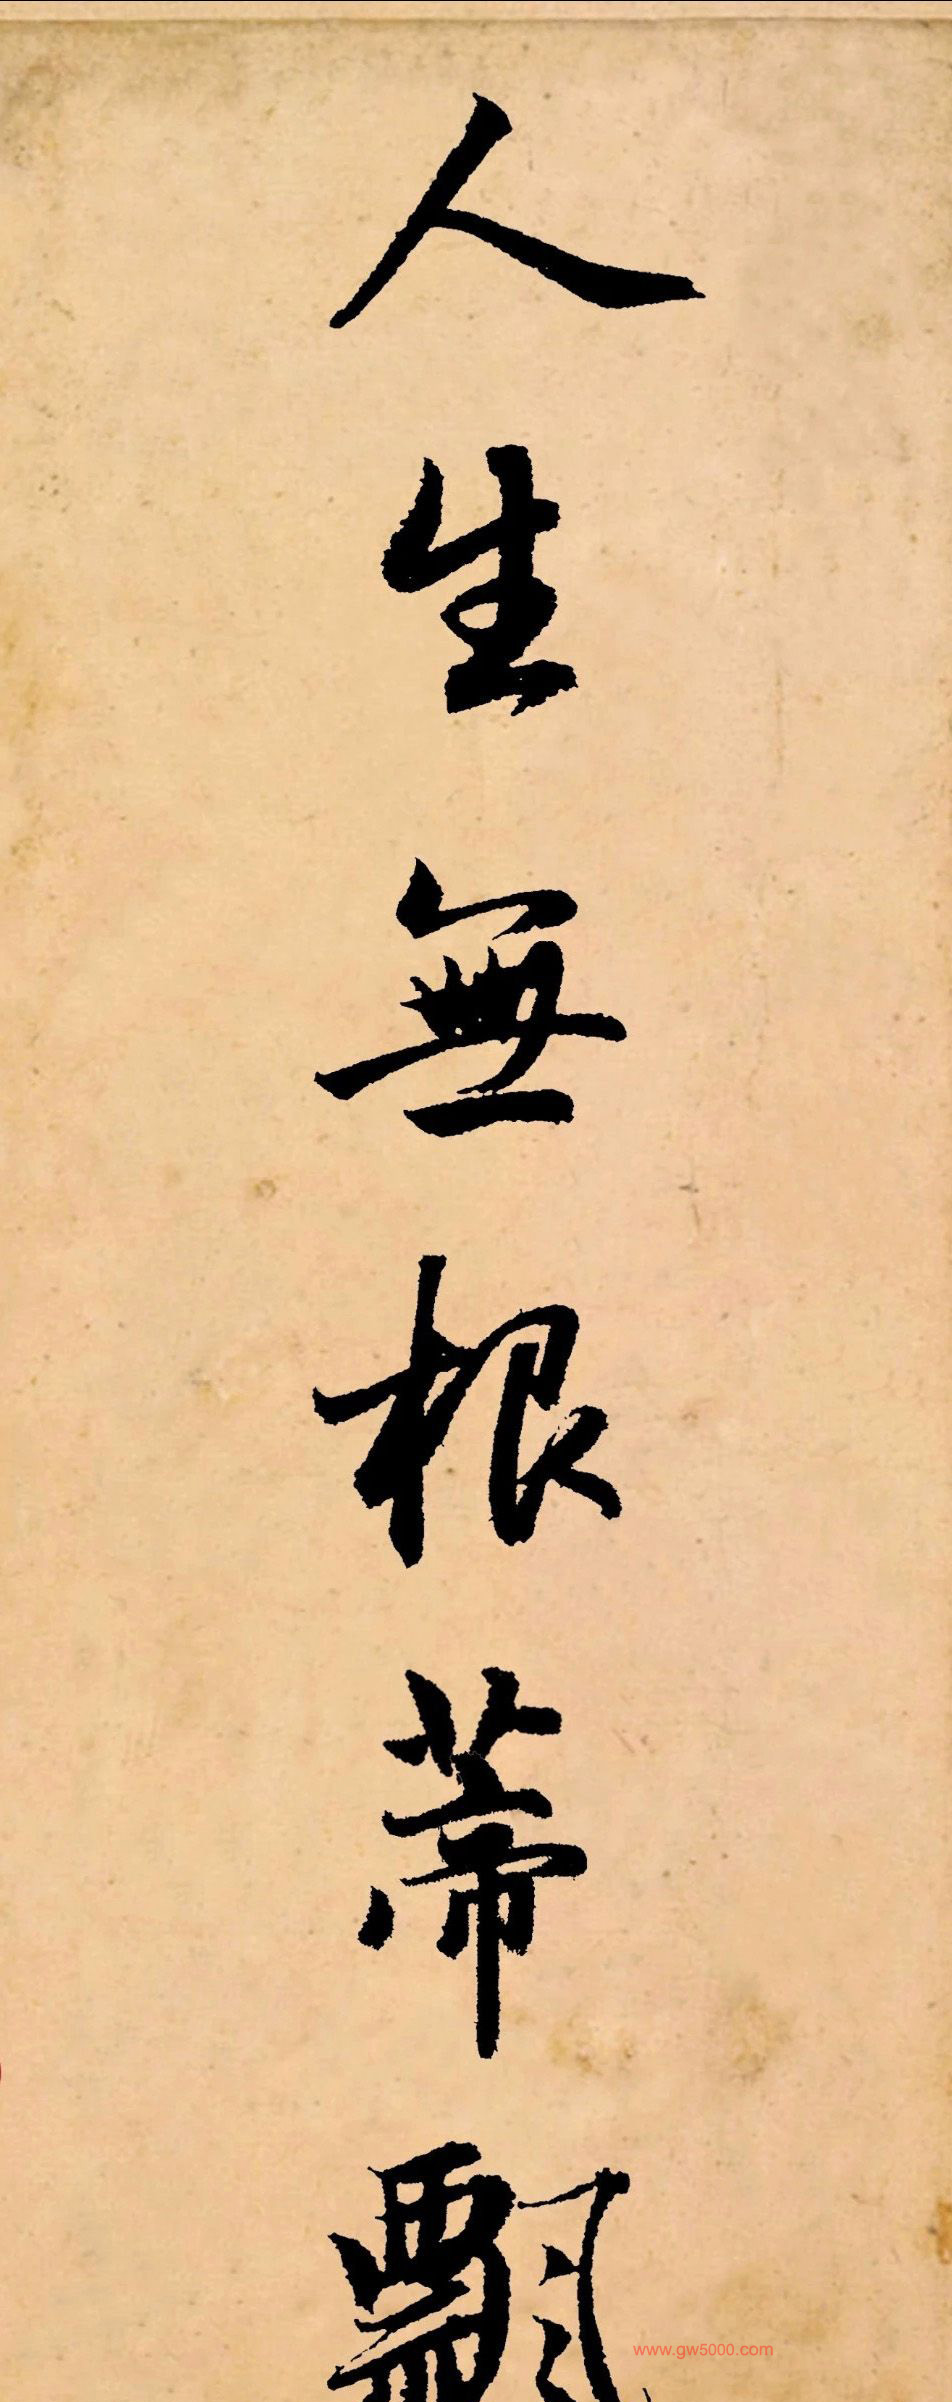 人生無根蒂飄
www.gw5000.com